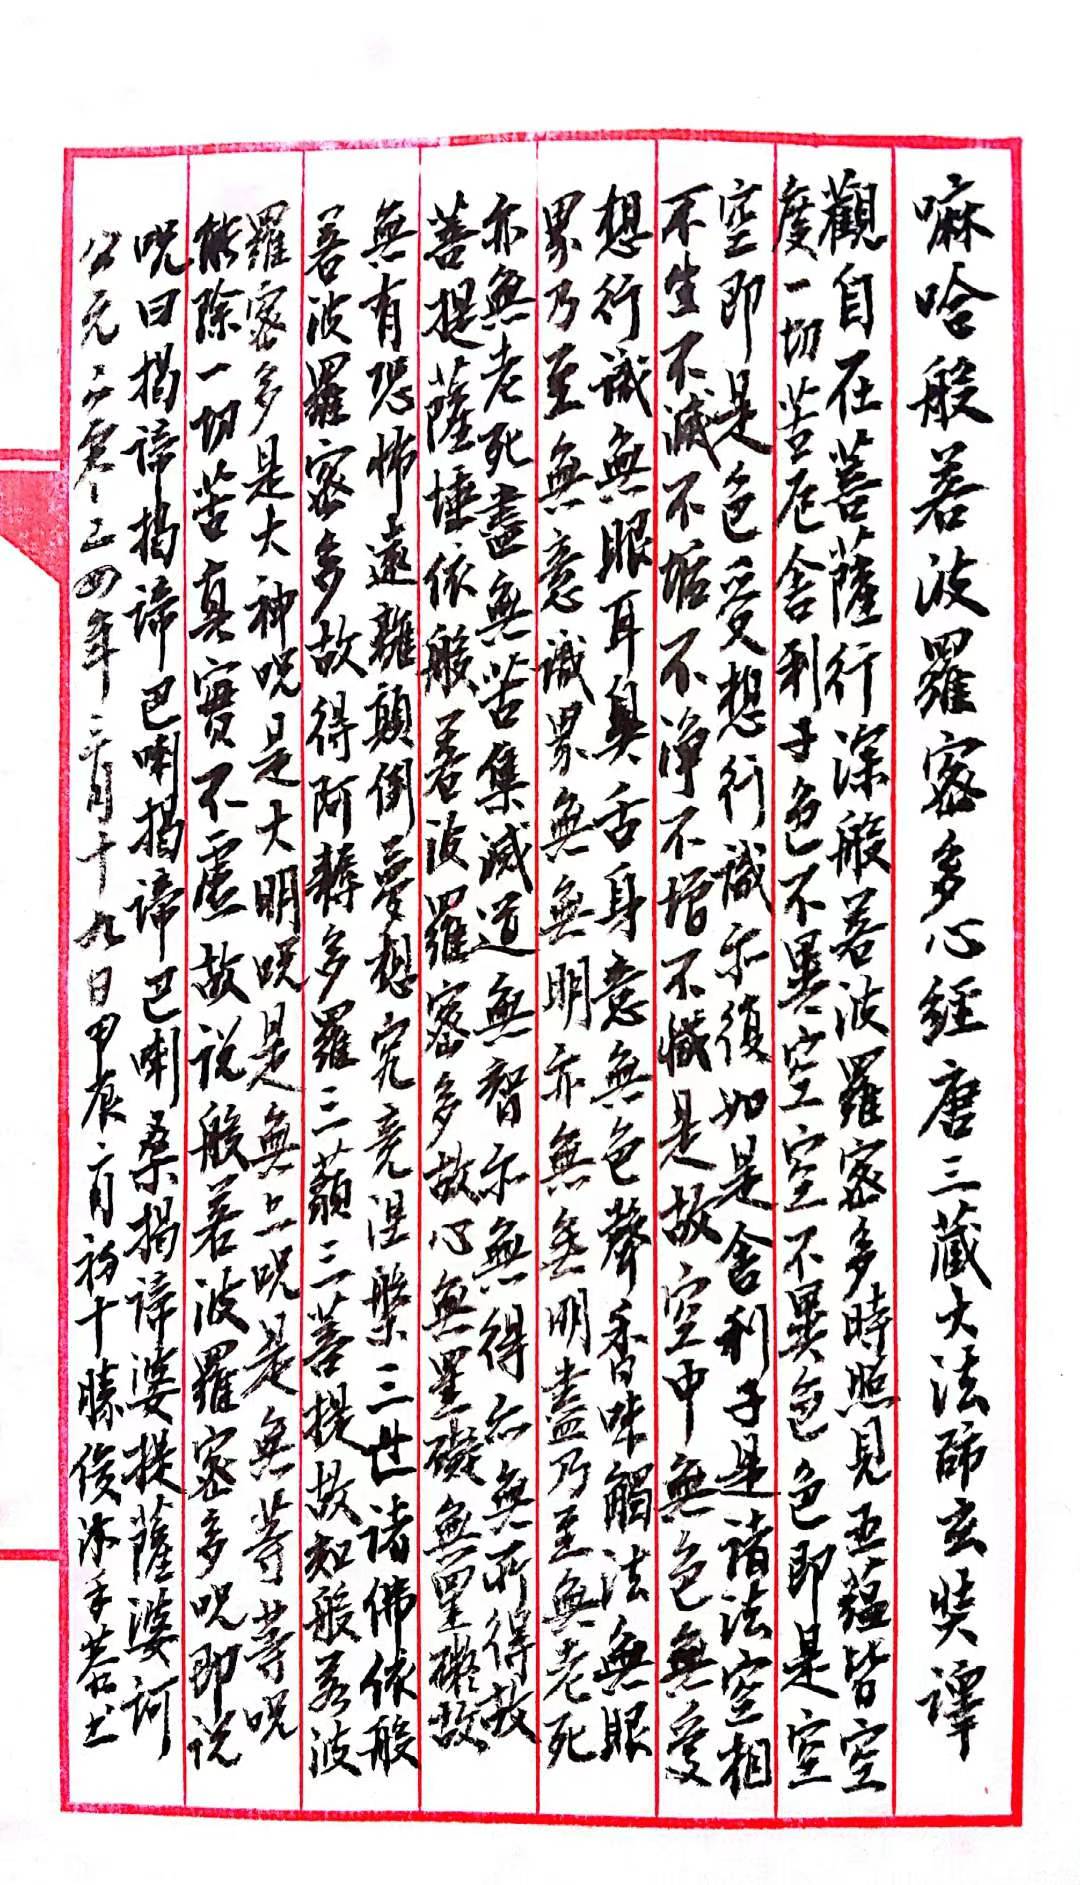 嘛哈般若波羅密多心經唐三藏大法師玄奘譯
觀自在菩薩行深般若波羅密多時照見五蘊皆空
度一切苦厄舍利子色不異空空不異色色即是空
空即是色受想行識亦復如是舍利子是諸法空相
不生不滅不垢不淨不增不減是故空中無色無受
想行識無眼耳鼻舌身意無色聲香味觸法無眼
界乃至無意識界無無明亦無無明盡乃至無老死
亦無老死盡無苦集滅道無智亦無得以無所得故
菩提薩埵依般若波羅密多故心無罣礙無罣礙故
無有恐怖遠離顛倒夢想究竟涅槃三世諸佛依般
若波羅密多故得阿耨多羅三藐三菩提故知般若波
羅密多是大神呪是大明呪是無上呪是無等等呪
能除一切苦真實不虛故说般若波羅密多呪即说
呪曰揭諦揭諦巴喇揭諦巴喇桑揭諦婆提薩婆訶
公元二零二四年三月十九日甲辰二月初十勝俊沐手恭书